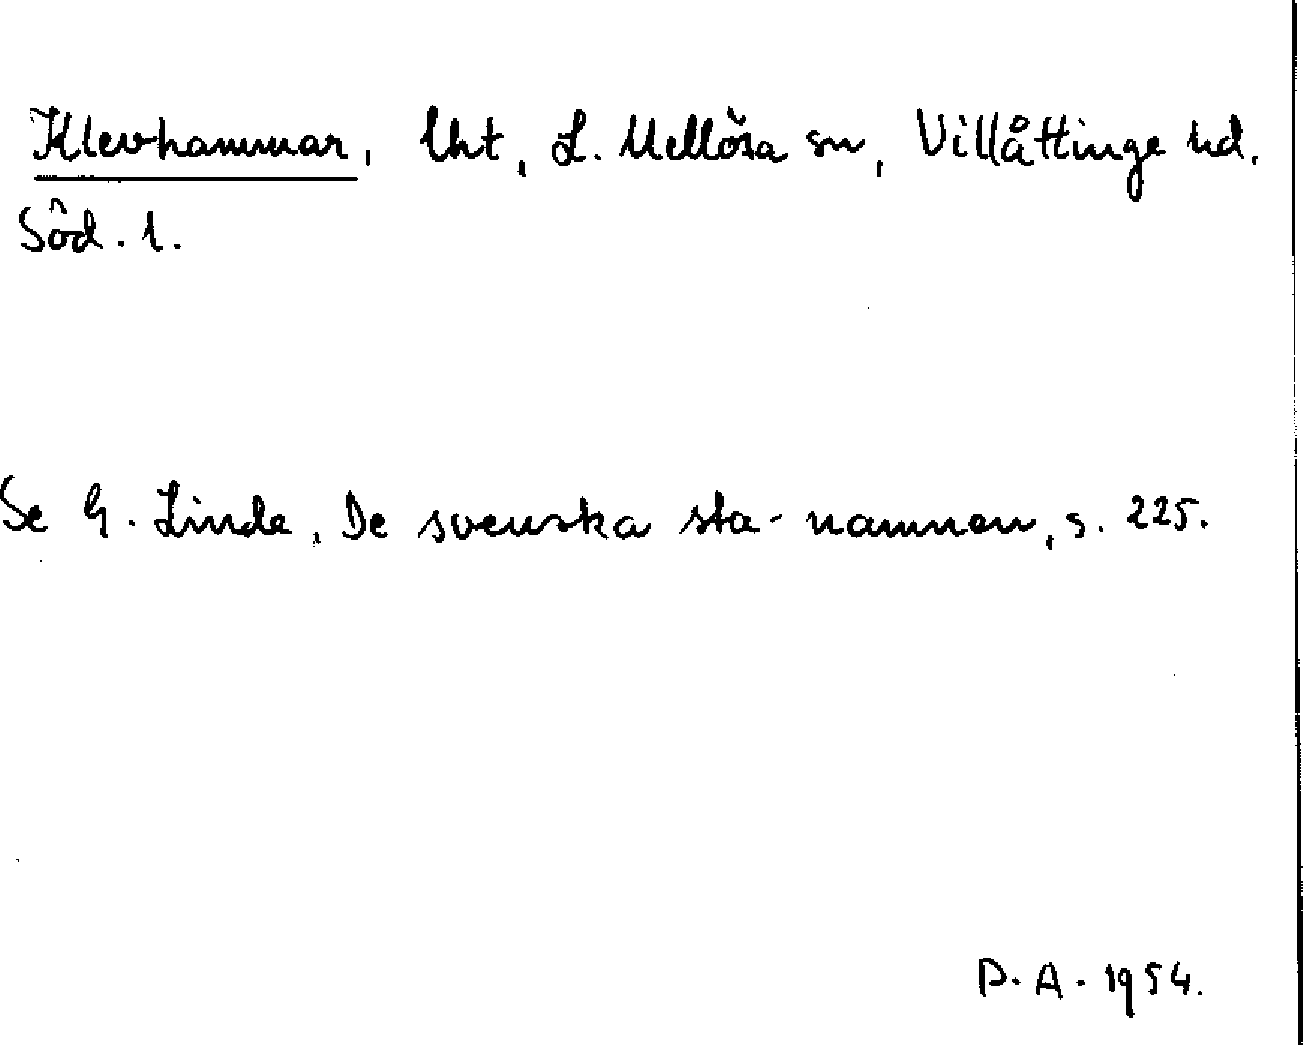 Klevhammar, lht, L. Mellösa sn, Villåttinge hd.
Söd. l.
Se G. Linde, De svenska sta-namnen, s. 225.
D. A. 1954.